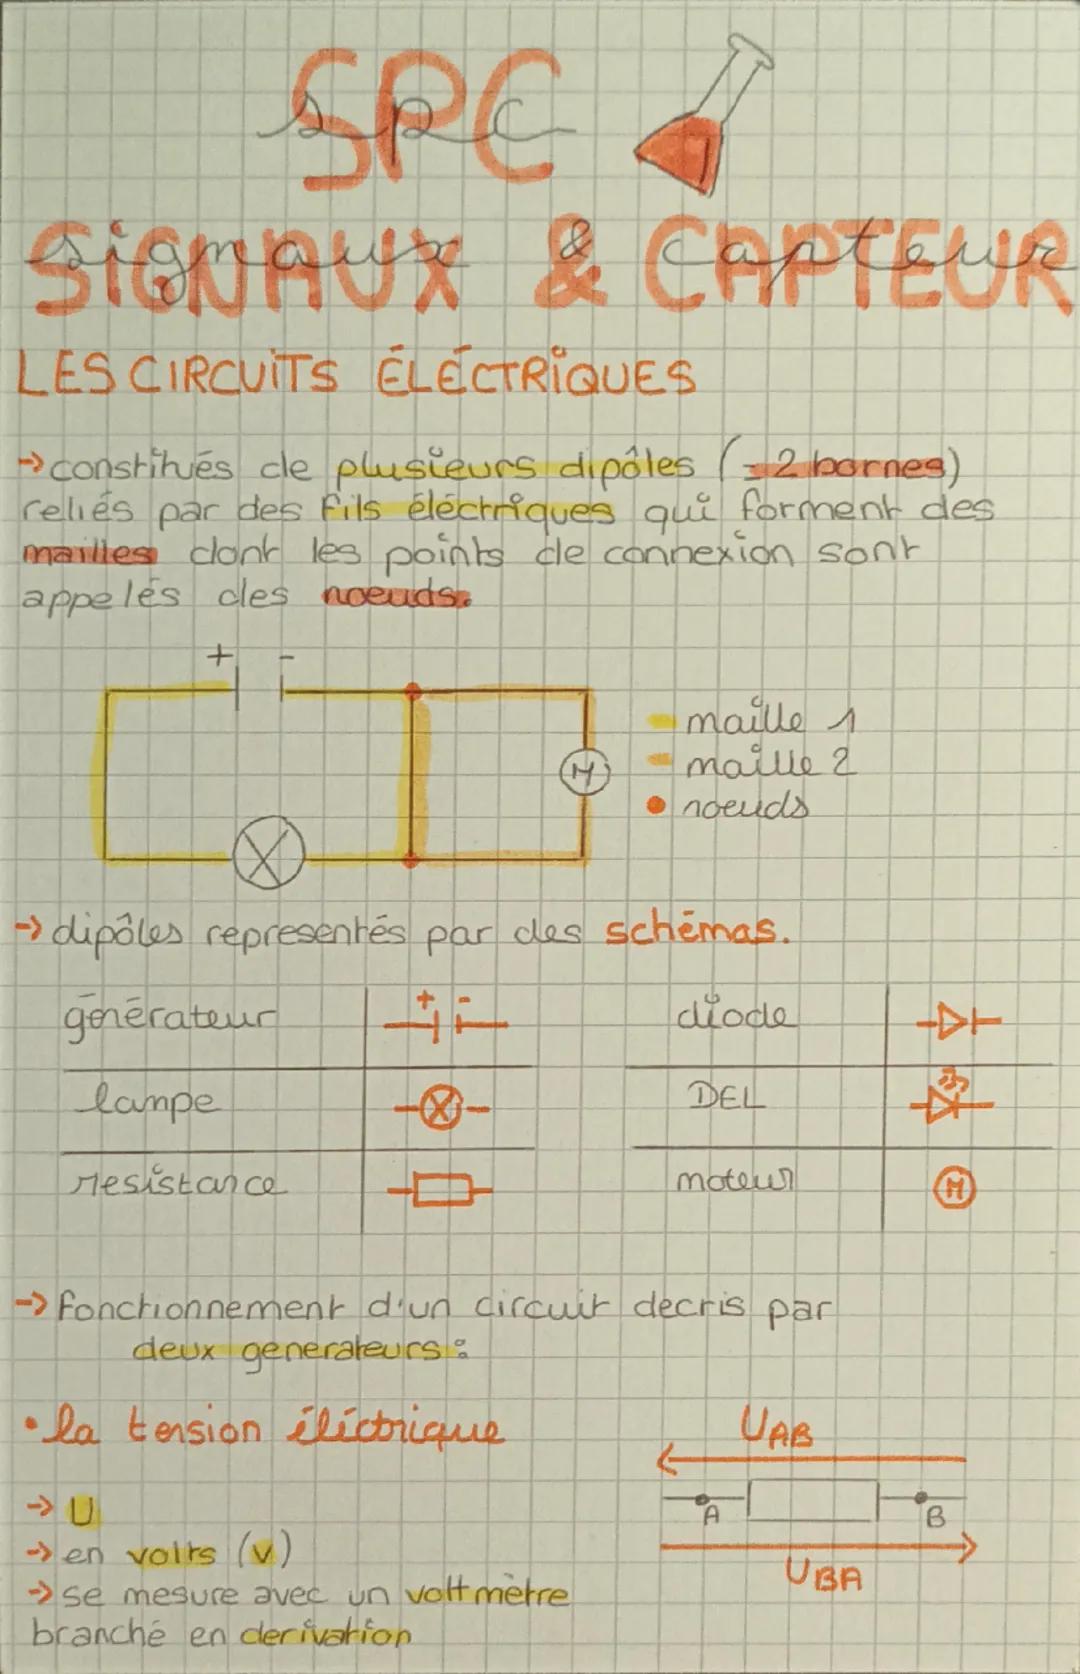 SPC
SIGNAUX & CAPTEUR
LES CIRCUITS ÉLÉCTRIQUES
→ constitués de plusieurs dipôles (= 2 bornes)
reliés par des fils éléctriques qui forment des
mailles dont les points de connexion sont
appelés des noeuds.
+ -
M
maille 1
maille 2
noeuds
→ dipôles representés par des schémas.
générateur + - diode
lampe DEL
resistance moteur M
→ fonctionnement d'un circuit decris par
deux generateurs :
• la tension éléctrique
UAB
A B
UBA
→ U
→ en volts (v)
→ se mesure avec un voltmètre
branché en derivation